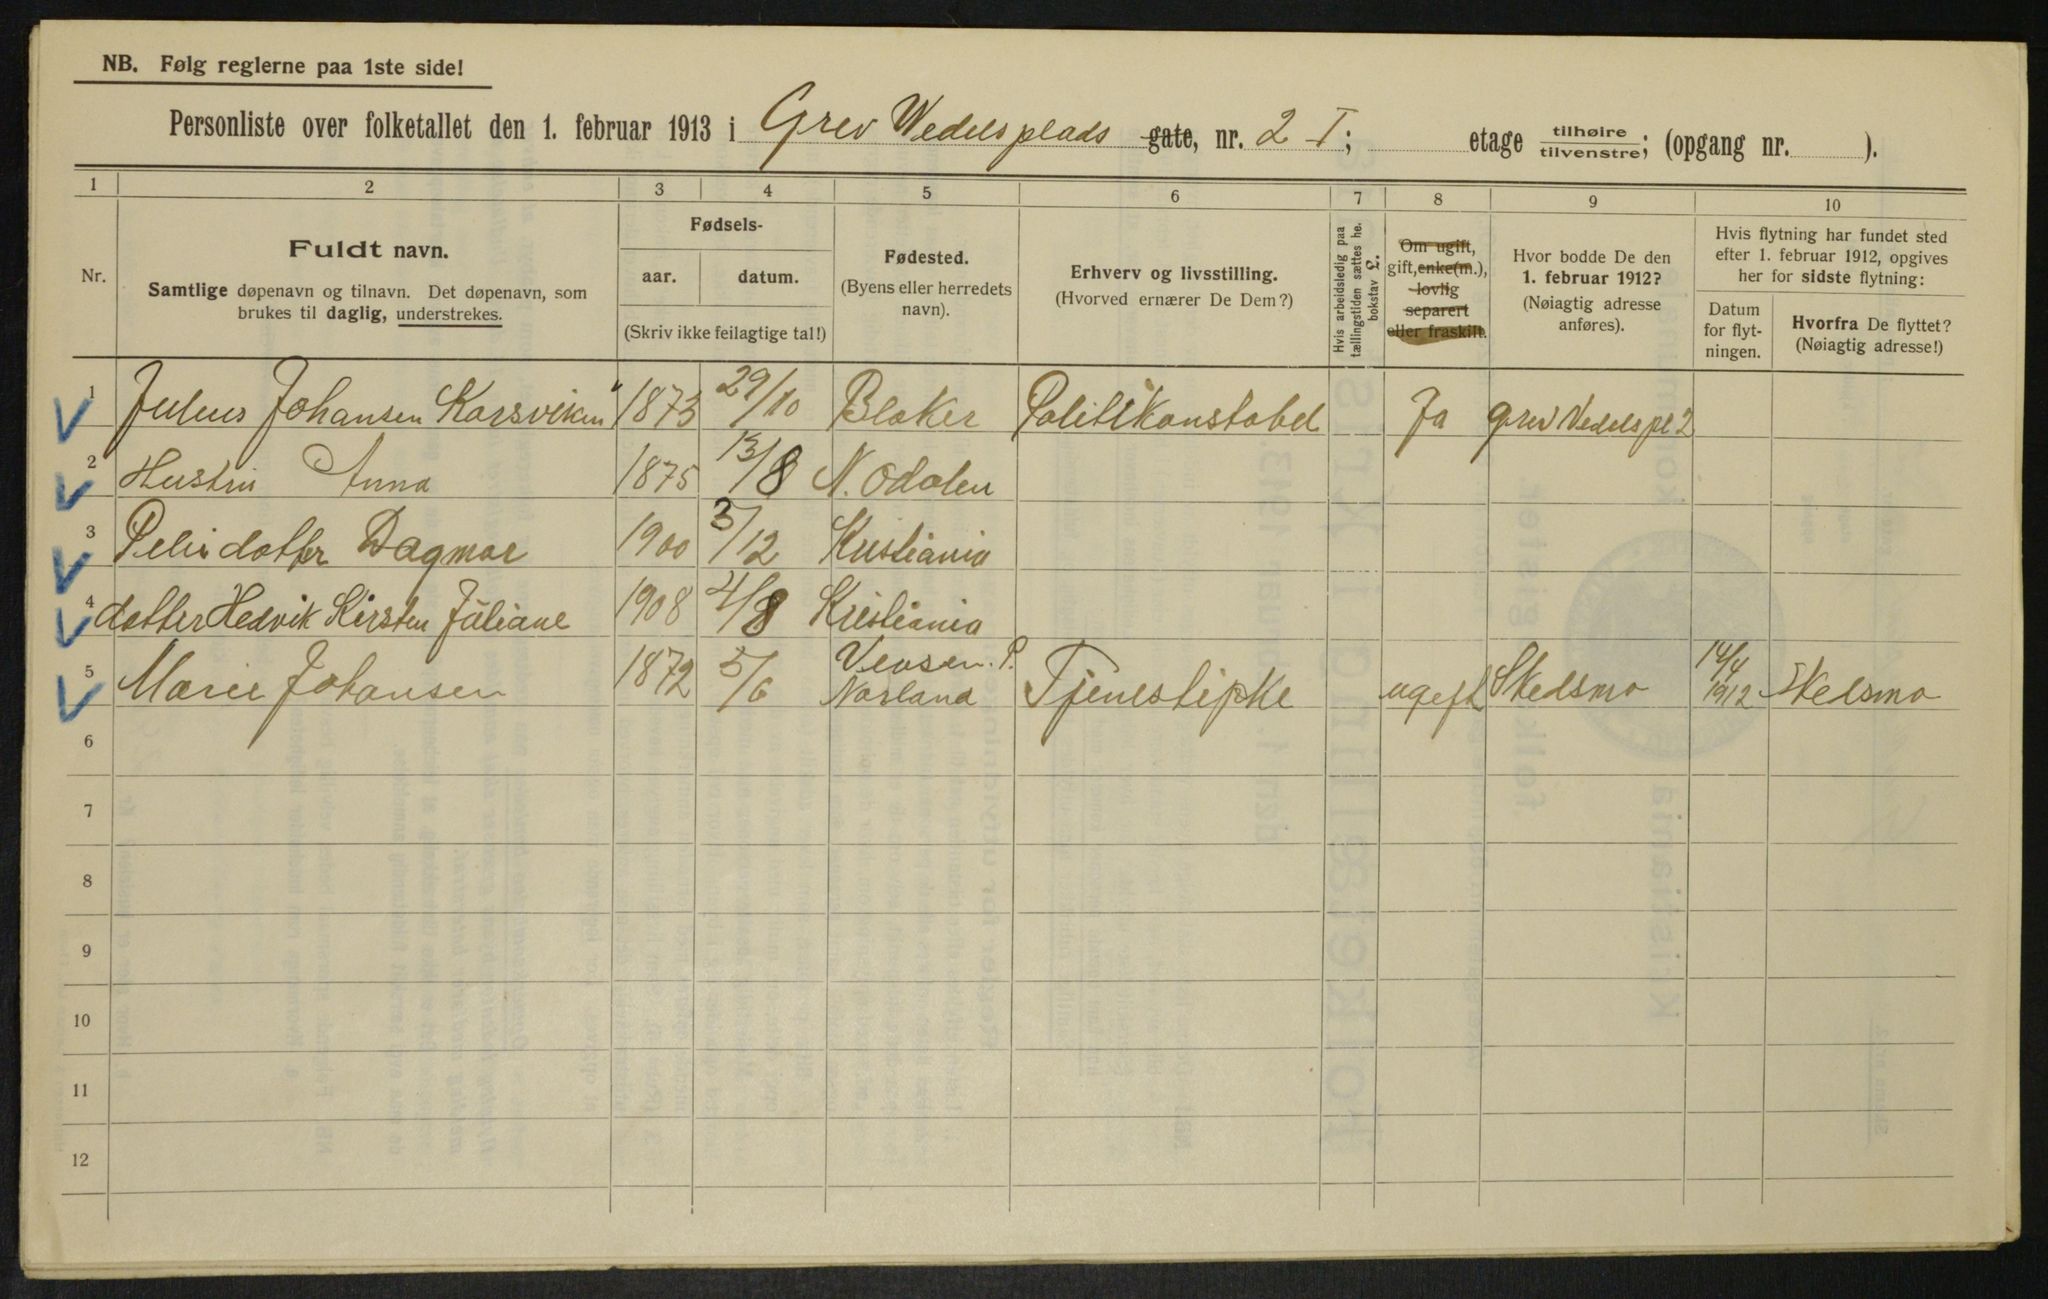 NB. Følg reglerne paa 1ste side!
Personliste over folketallet den 1. februar 1913 i Grev Wedelsplads gate, nr. 2 I; etage tilhøire/tilvenstre; (opgang nr. ).
1 2 3 4 5 6 7 8 9 10
Nr.
Fuldt navn.
Samtlige døpenavn og tilnavn. Det døpenavn, som
brukes til daglig, understrekes.
Fødsels-
aar. datum.
(Skriv ikke feilagtige tal!)
Fødested.
(Byens eller herredets
navn).
Erhverv og livsstilling.
(Hvorved ernærer De Dem?)
Hvis arbeidsledig paa
tællingstiden sættes he.
bokstav £.
Om ugift,
gift, enke(m.),
lovlig
separert
eller fraskilt.
Hvor bodde De den
1. februar 1912?
(Nøiagtig adresse
anføres).
Hvis flytning har fundet sted
efter 1. februar 1912, opgives
her for sidste flytning:
Datum
for flyt-
ningen.
Hvorfra De flyttet?
(Nøiagtig adresse!)
1 Julius Johansen Korsviken 1873 29/10 Blaker Politikonstabel Ja Grev Wedelspl 2
2 Hustru Anna 1875 13/8 N. Odalen
3 dotter Dagmar 1900 3/12 Kristiania
4 dotter Hedvik Kirsten Juliane 1908 4/8 Kristiania
5 Marie Johansen 1872 5/6 Norland Tjenestepike ugift Skedsmo 14/4 1912 Skedsmo
6
7
8
9
10
11
12